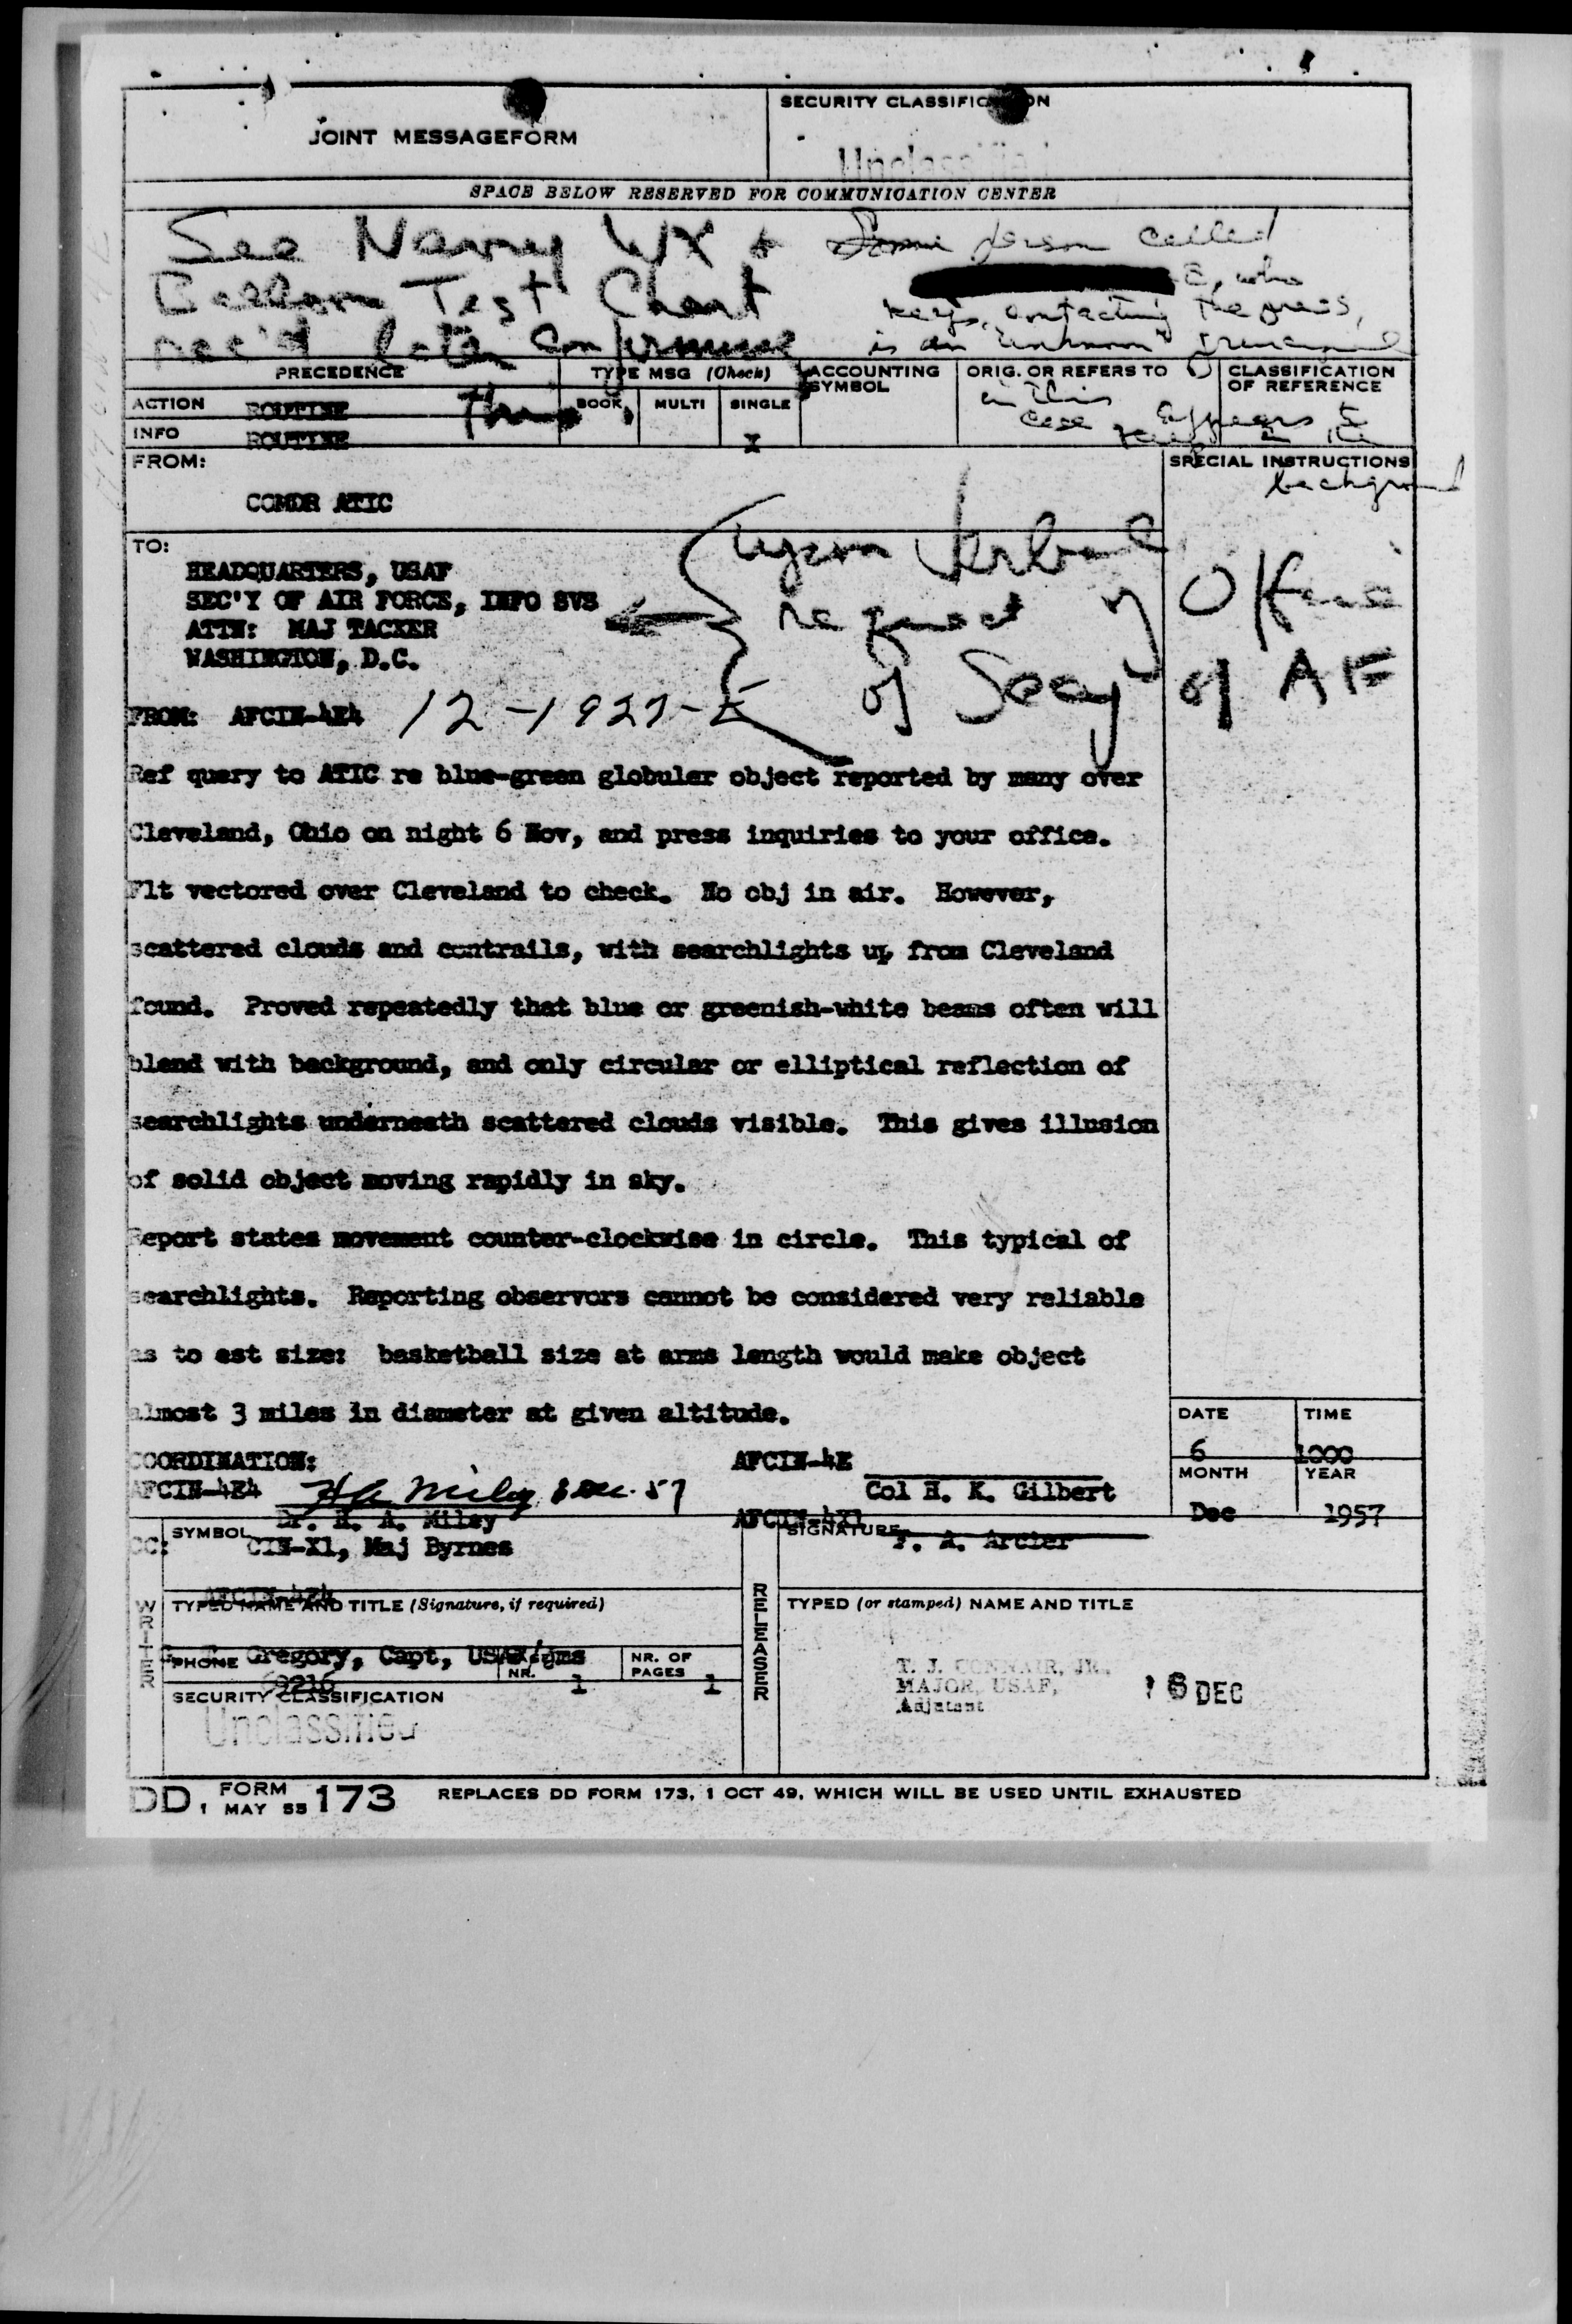 JOINT MESSAGEFORM
SECURITY CLASSIFICATION
Unclassified
SPACE BELOW RESERVED FOR COMMUNICATION CENTER
See Navy WX &
Balloon Test Chart
rec'd later confirming
this
Some person called
who
keeps contacting the press,
is an "unknown"
in this
case appears to
keep in the
background
PRECEDENCE
TYPE MSG (Check)
ACCOUNTING SYMBOL
ORIG. OR REFERS TO
CLASSIFICATION OF REFERENCE
ACTION ROUTINE
BOOK MULTI SINGLE
INFO ROUTINE
X
FROM:
SPECIAL INSTRUCTIONS
COMDR ATIC
TO:
HEADQUARTERS, USAF
SEC'Y OF AIR FORCE, INFO SVS
ATTN: MAJ TACKER
WASHINGTON, D.C.
Upon verbal
request of Office
of Secy of AF
FROM: AFCIN-4E4 12-1927-E
Ref query to ATIC re blue-green globular object reported by many over
Cleveland, Ohio on night 6 Nov, and press inquiries to your office.
Flt vectored over Cleveland to check. No obj in air. However,
scattered clouds and contrails, with searchlights up from Cleveland
found. Proved repeatedly that blue or greenish-white beams often will
blend with background, and only circular or elliptical reflection of
searchlights underneath scattered clouds visible. This gives illusion
of solid object moving rapidly in sky.
Report states movement counter-clockwise in circle. This typical of
searchlights. Reporting observors cannot be considered very reliable
as to est size: basketball size at arms length would make object
almost 3 miles in diameter at given altitude.
DATE TIME
6 1000
MONTH YEAR
Dec 1957
COORDINATION:
AFCIN-4E4 H A Miley 8 Dec. 57
Dr. H. A. Miley
AFCIN-4E
Col H. K. Gilbert
AFCIN-4X1
F. A. Arcier
CC:
SYMBOL
CIN-X1, Maj Byrnes
AFCIN-4E4
SIGNATURE
WRITER
TYPED NAME AND TITLE (Signature, if required)
Gregory, Capt, USAF/gms
PHONE
69216
NR.
1
NR. OF PAGES
1
SECURITY CLASSIFICATION
Unclassified
RELEASER
TYPED (or stamped) NAME AND TITLE
T. J. CONNAIR, JR.
MAJOR, USAF,
Adjutant
16 DEC
DD, FORM 173
1 MAY 55
REPLACES DD FORM 173, 1 OCT 49, WHICH WILL BE USED UNTIL EXHAUSTED